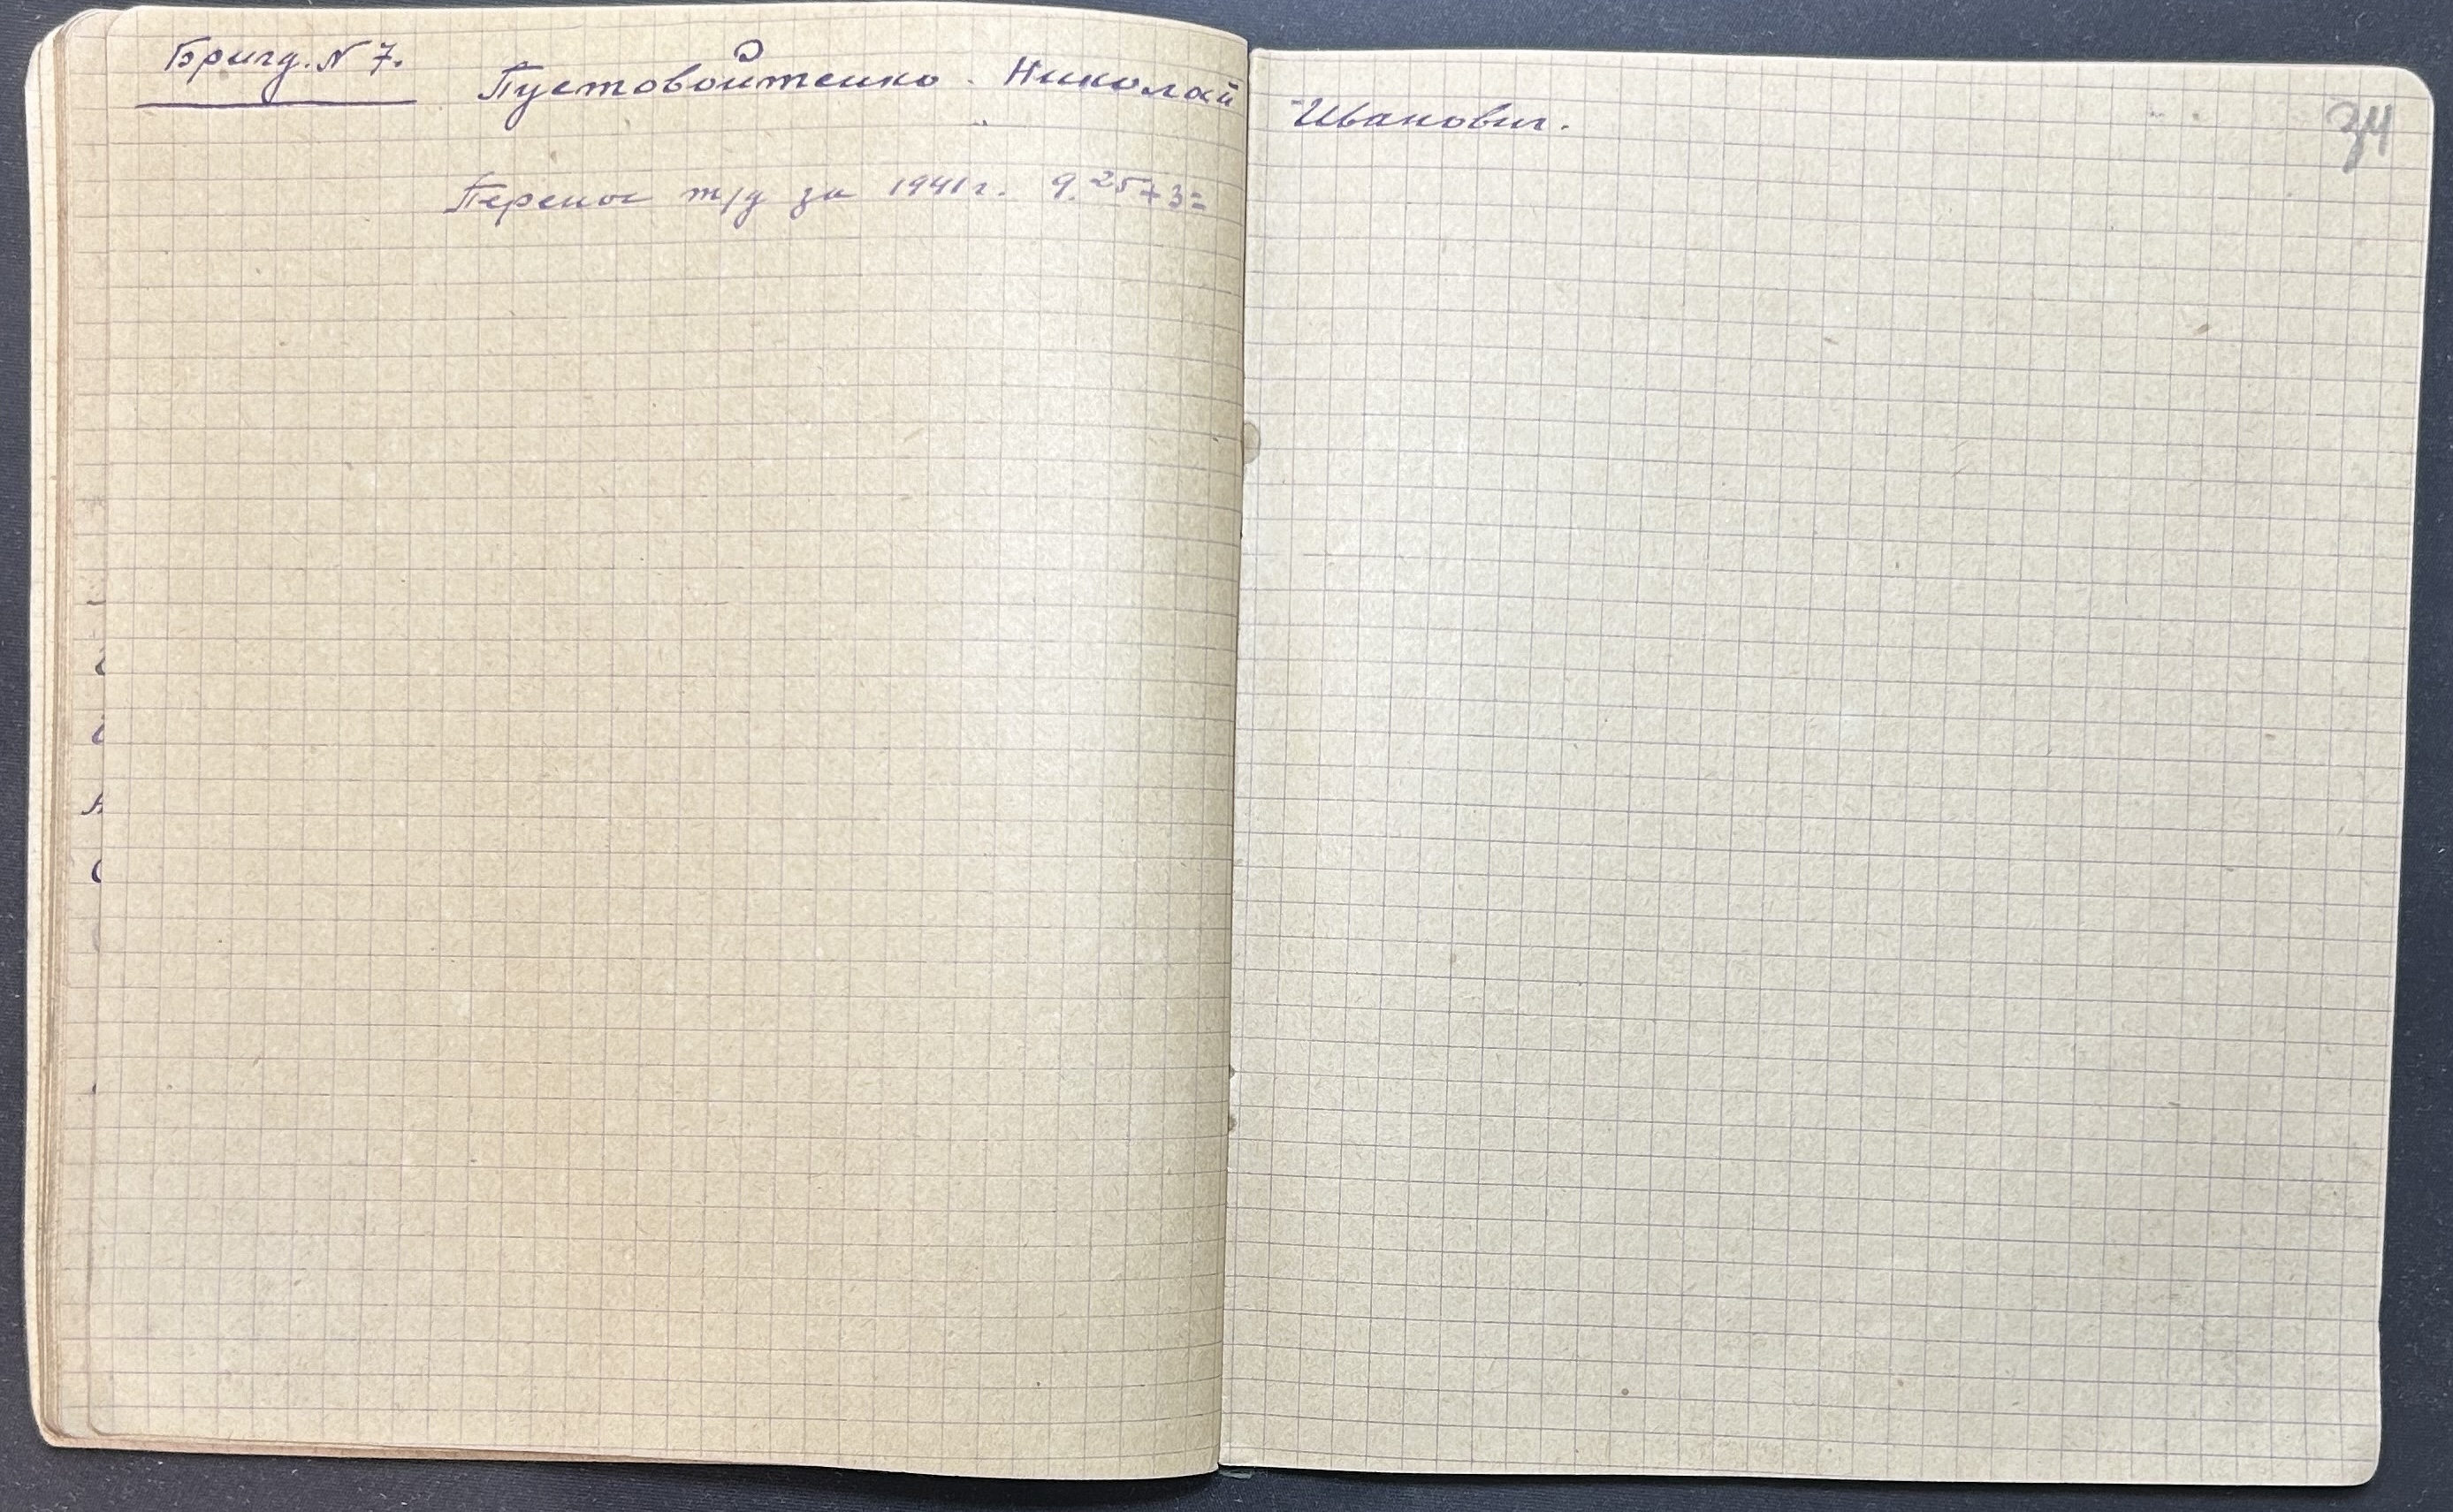 Бригд. N 7.
Пустовойтенко. Николай Иванович.
34
Перенос т/д за 1941 г. 9.25+3=